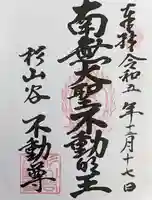 奉拝 令和五年十二月十七日
南無大聖不動明王
杉山谷 不動尊